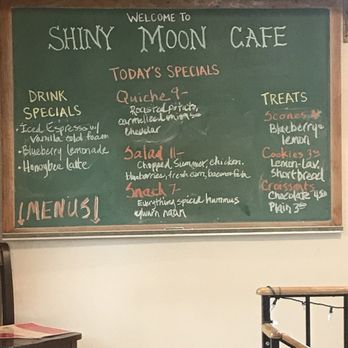 WELCOME TO
SHINY MOON CAFE
TODAY'S SPECIALS
DRINK
SPECIALS
• Iced Espresso w/
vanilla cold foam
• Blueberry lemonade
• Honeybee latte
↓MENUS↓
Quiche 9-
Roasted potato,
carmelized onion
cheddar
Salad 11-
Chopped, Summer, chicken,
blueberries, fresh corn, bacon
Snack 7-
Everything spiced hummus
naan
TREATS
Scones
Blueberry
lemon
Cookies
Lemon-Lav.
Shortbread
Croissants
Chocolate
Plain